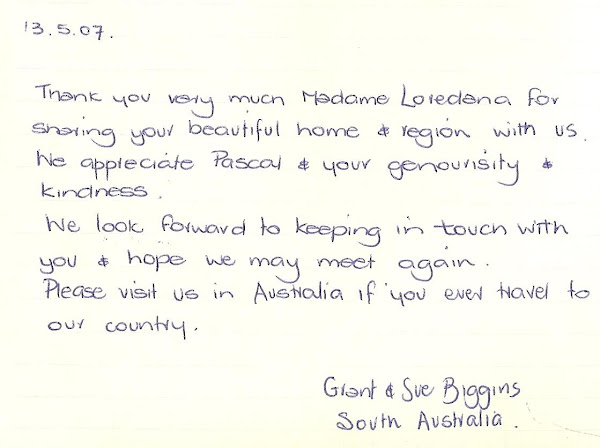 13.5.07.
Thank you very much Madame Loredana for
sharing your beautiful home & region with us.
We appreciate Pascal & your genourisity &
kindness.
We look forward to keeping in touch with
you & hope we may meet again.
Please visit us in Australia if you ever travel to
our country.
Grant & Sue Biggins
South Australia.